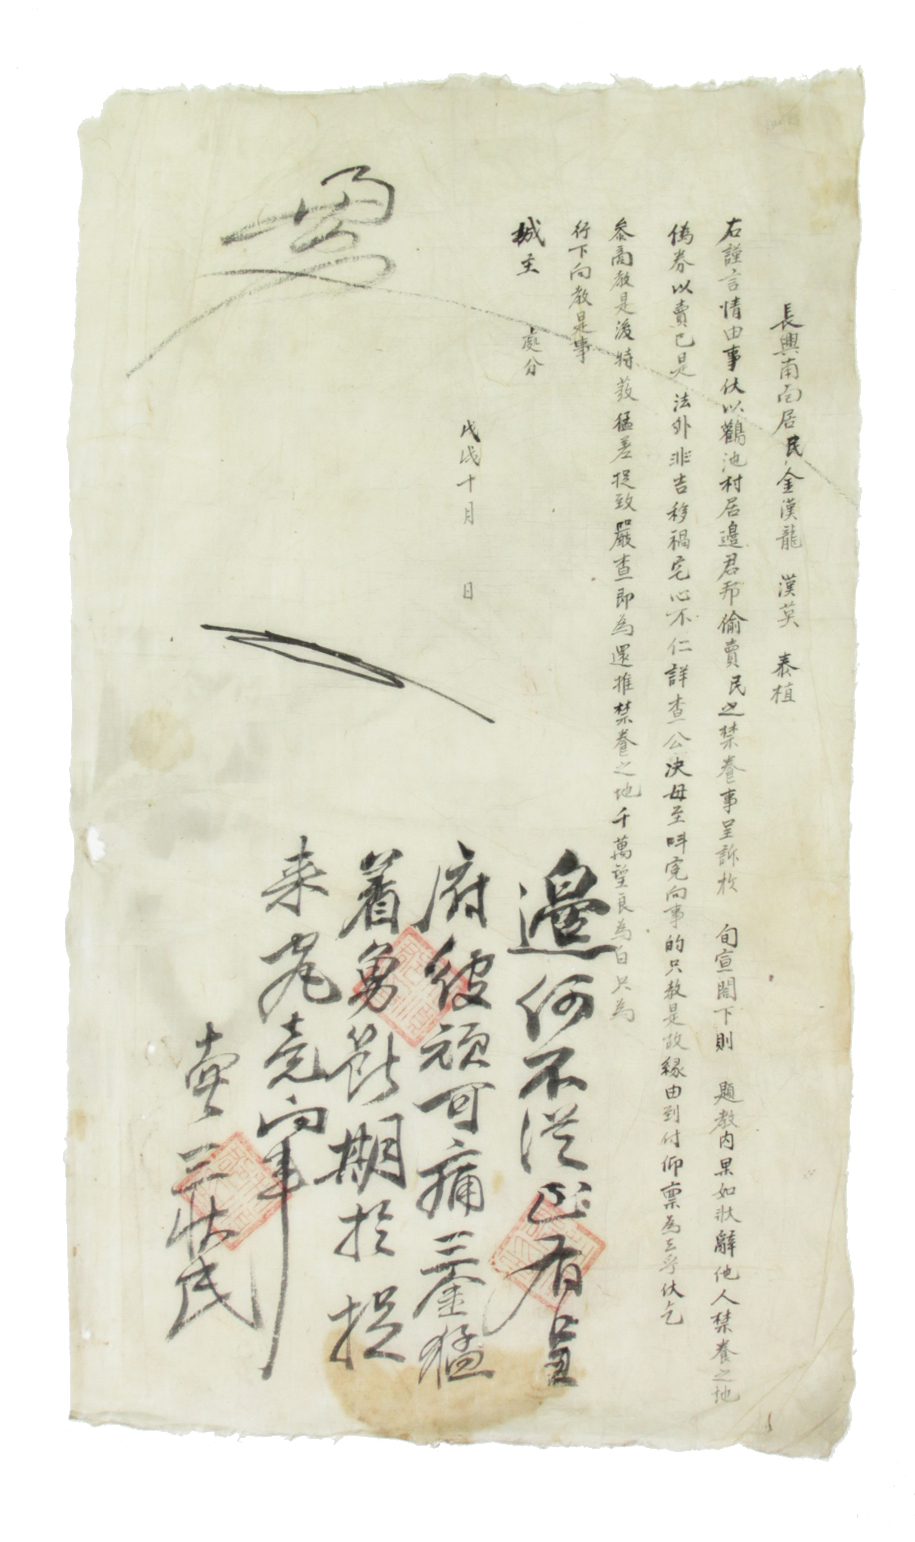 長興南面居民金漢龍 漢英 泰植
右謹言情由事伏以鸛池村居邊君邦偷賣民之禁養事呈訴於 旬宣閤下則 題教內果如狀辭他人禁養之地
偽券以賣已是 法外非吉移禍宅心不仁詳查公決毋至呌寃向事的只教是故緣由到付仰稟為去乎伏乞
參商教是後特發猛差捉致嚴查即為還推禁養之地千萬望良為白只為
行下向教是事
城主 處分
戊戌十月 日
邊何不從 者
府 頑可痛 猛
着勇 期於捉
來 向事
狀民